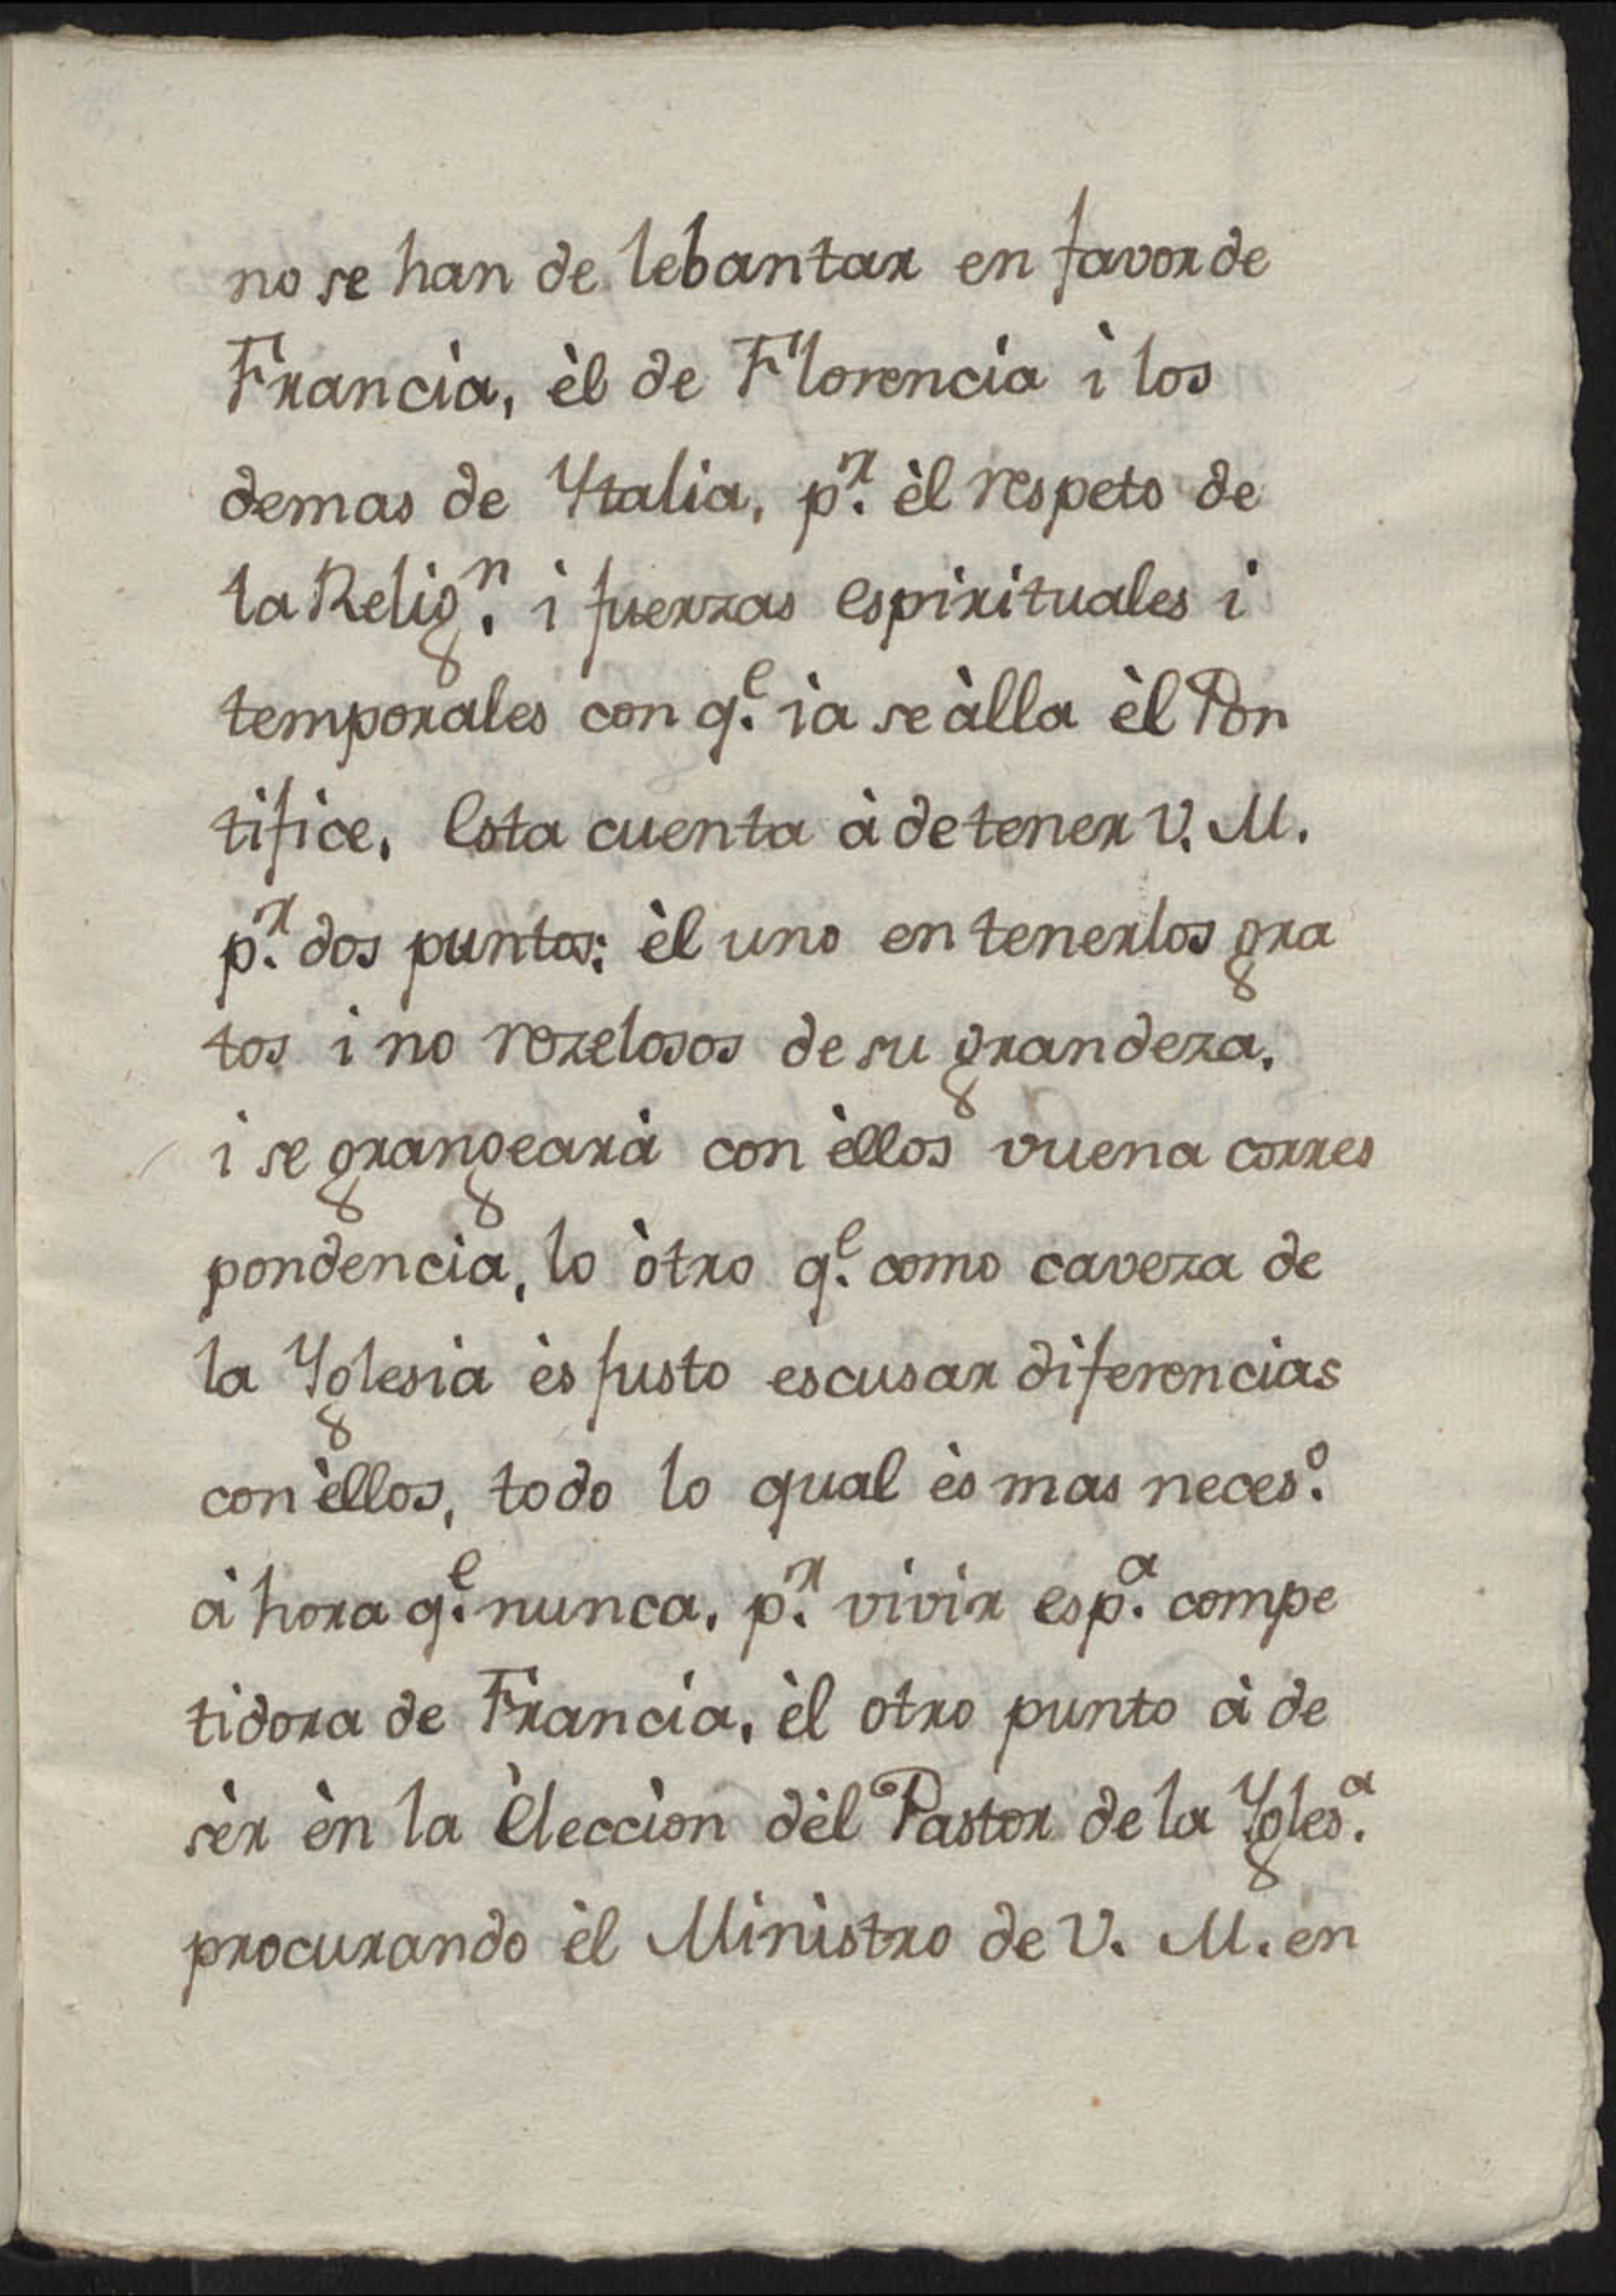 no se han de lebantar en favor de
Francia, èl de Florencia ì los
demas de Ytalia, p.r èl respeto de
la Relig.n i fuerzas espirituales i
temporales con q.e ìa se àlla èl Pon
tifice. Esta cuenta à de tener V. M.
p.r dos puntos: èl uno en tenerlos gra
tos i no rezelosos de su grandeza,
i se grangearà con èllos vuena corres
pondencia, lo òtro q.e como caveza de
la Yglesia ès justo escusar diferencias
con èllos, todo lo qual ès mas neces.o
à hora q.e nunca, p.r vivir esp.a compe
tidora de Francia, èl otro punto à de
sèr èn la Èleccion dèl Pastor de la Ygles.a
procurando èl Ministro de V. M. en